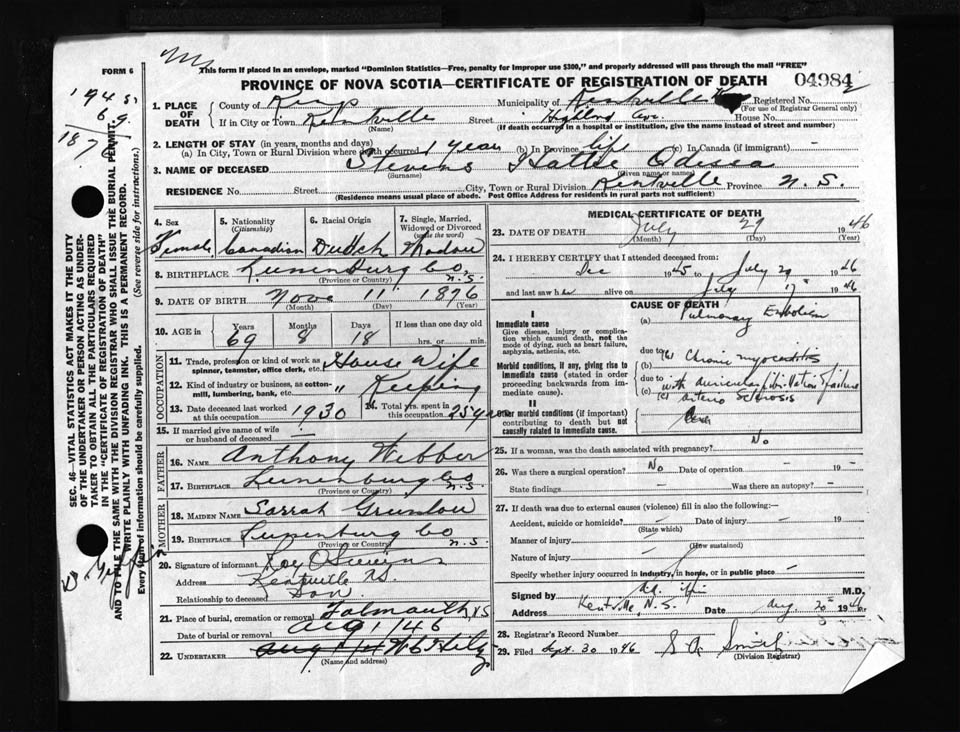 FORM 6
This form if placed in an envelope, marked "Dominion Statistics—Free, penalty for improper use $300," and properly addressed will pass through the mail "FREE"
PROVINCE OF NOVA SCOTIA—CERTIFICATE OF REGISTRATION OF DEATH
04984
1. PLACE OF DEATH
County of Kings Municipality of Kentville Registered No.
(For use of Registrar General only)
If in City or Town Kentville Street Highland Ave. House No.
(Name) (If death occurred in a hospital or institution, give the name instead of street and number)
2. LENGTH OF STAY (in years, months and days)
(a) In City, Town or Rural Division where death occurred 1 year (b) In Province life (c) In Canada (if immigrant) —
3. NAME OF DECEASED Stevens Hattie Odessa
(Surname) (Given name or names)
RESIDENCE No. Street City, Town or Rural Division Kentville Province N.S.
(Residence means usual place of abode. Post Office Address for residents in rural parts not sufficient)
4. Sex 5. Nationality (Citizenship) 6. Racial Origin 7. Single, Married, Widowed or Divorced (write the word)
Female Canadian Dutch Widow
8. BIRTHPLACE Lunenburg Co N.S.
(Province or Country)
9. DATE OF BIRTH Nove 11 1876
(Month) (Day) (Year)
10. AGE in Years Months Days If less than one day old
69 8 18 hrs. or min.
OCCUPATION
11. Trade, profession or kind of work as spinner, teamster, office clerk, etc. House Wife
12. Kind of industry or business, as cotton-mill, lumbering, bank, etc. " Keeping
13. Date deceased last worked at this occupation 1930 14. Total yrs. spent in this occupation 25 years
15. If married give name of wife or husband of deceased —
FATHER
16. NAME Anthony Webber
17. BIRTHPLACE Lunenburg Co N.S.
(Province or Country)
MOTHER
18. MAIDEN NAME Sarrah
19. BIRTHPLACE Lunenburg Co N.S.
(Province or Country)
20. Signature of informant Roy O Stevens
Address Kentville N.S.
Relationship to deceased Son
21. Place of burial, cremation or removal Falmouth, N.S.
Date of burial or removal Aug 1/46
22. UNDERTAKER
(Name and address)
MEDICAL CERTIFICATE OF DEATH
23. DATE OF DEATH July 29 1946
(Month) (Day) (Year)
24. I HEREBY CERTIFY that I attended deceased from:
Dec 1945 to July 29 1946
and last saw her alive on July 17 1946
CAUSE OF DEATH
I
Immediate cause
Give disease, injury or complication which caused death, not the mode of dying, such as heart failure, asphyxia, asthenia, etc.
(a) Pulmonary Embolism
Morbid conditions, if any, giving rise to immediate cause (stated in order proceeding backwards from immediate cause).
due to
(b) Chronic myocarditis
due to with auricular fibrillation & failure
(c) Arterio sclerosis
II
Other morbid conditions (if important) contributing to death but not causally related to immediate cause.
25. If a woman, was the death associated with pregnancy? No
26. Was there a surgical operation? No Date of operation — 19 —
State findings — Was there an autopsy? —
27. If death was due to external causes (violence) fill in also the following:—
Accident, suicide or homicide? — Date of injury — 19
(State which)
Manner of injury —
(How sustained)
Nature of injury —
Specify whether injury occurred in industry, in home, or in public place —
Signed by M.D.
Address Kentville, N.S. Date Aug. 30 1946
28. Registrar's Record Number
29. Filed Sept. 30 1946 Smith
(Division Registrar)
SEC. 46—VITAL STATISTICS ACT MAKES IT THE DUTY
OF THE UNDERTAKER OR PERSON ACTING AS UNDERTAKER TO OBTAIN ALL THE PARTICULARS REQUIRED
IN THE "CERTIFICATE OF REGISTRATION OF DEATH"
AND TO FILE THE SAME WITH THE DIVISION REGISTRAR WHO SHALL ISSUE THE BURIAL PERMIT.
WRITE PLAINLY WITH UNFADING INK. THIS IS A PERMANENT RECORD.
Every item of information should be carefully supplied. (See reverse side for instructions.)